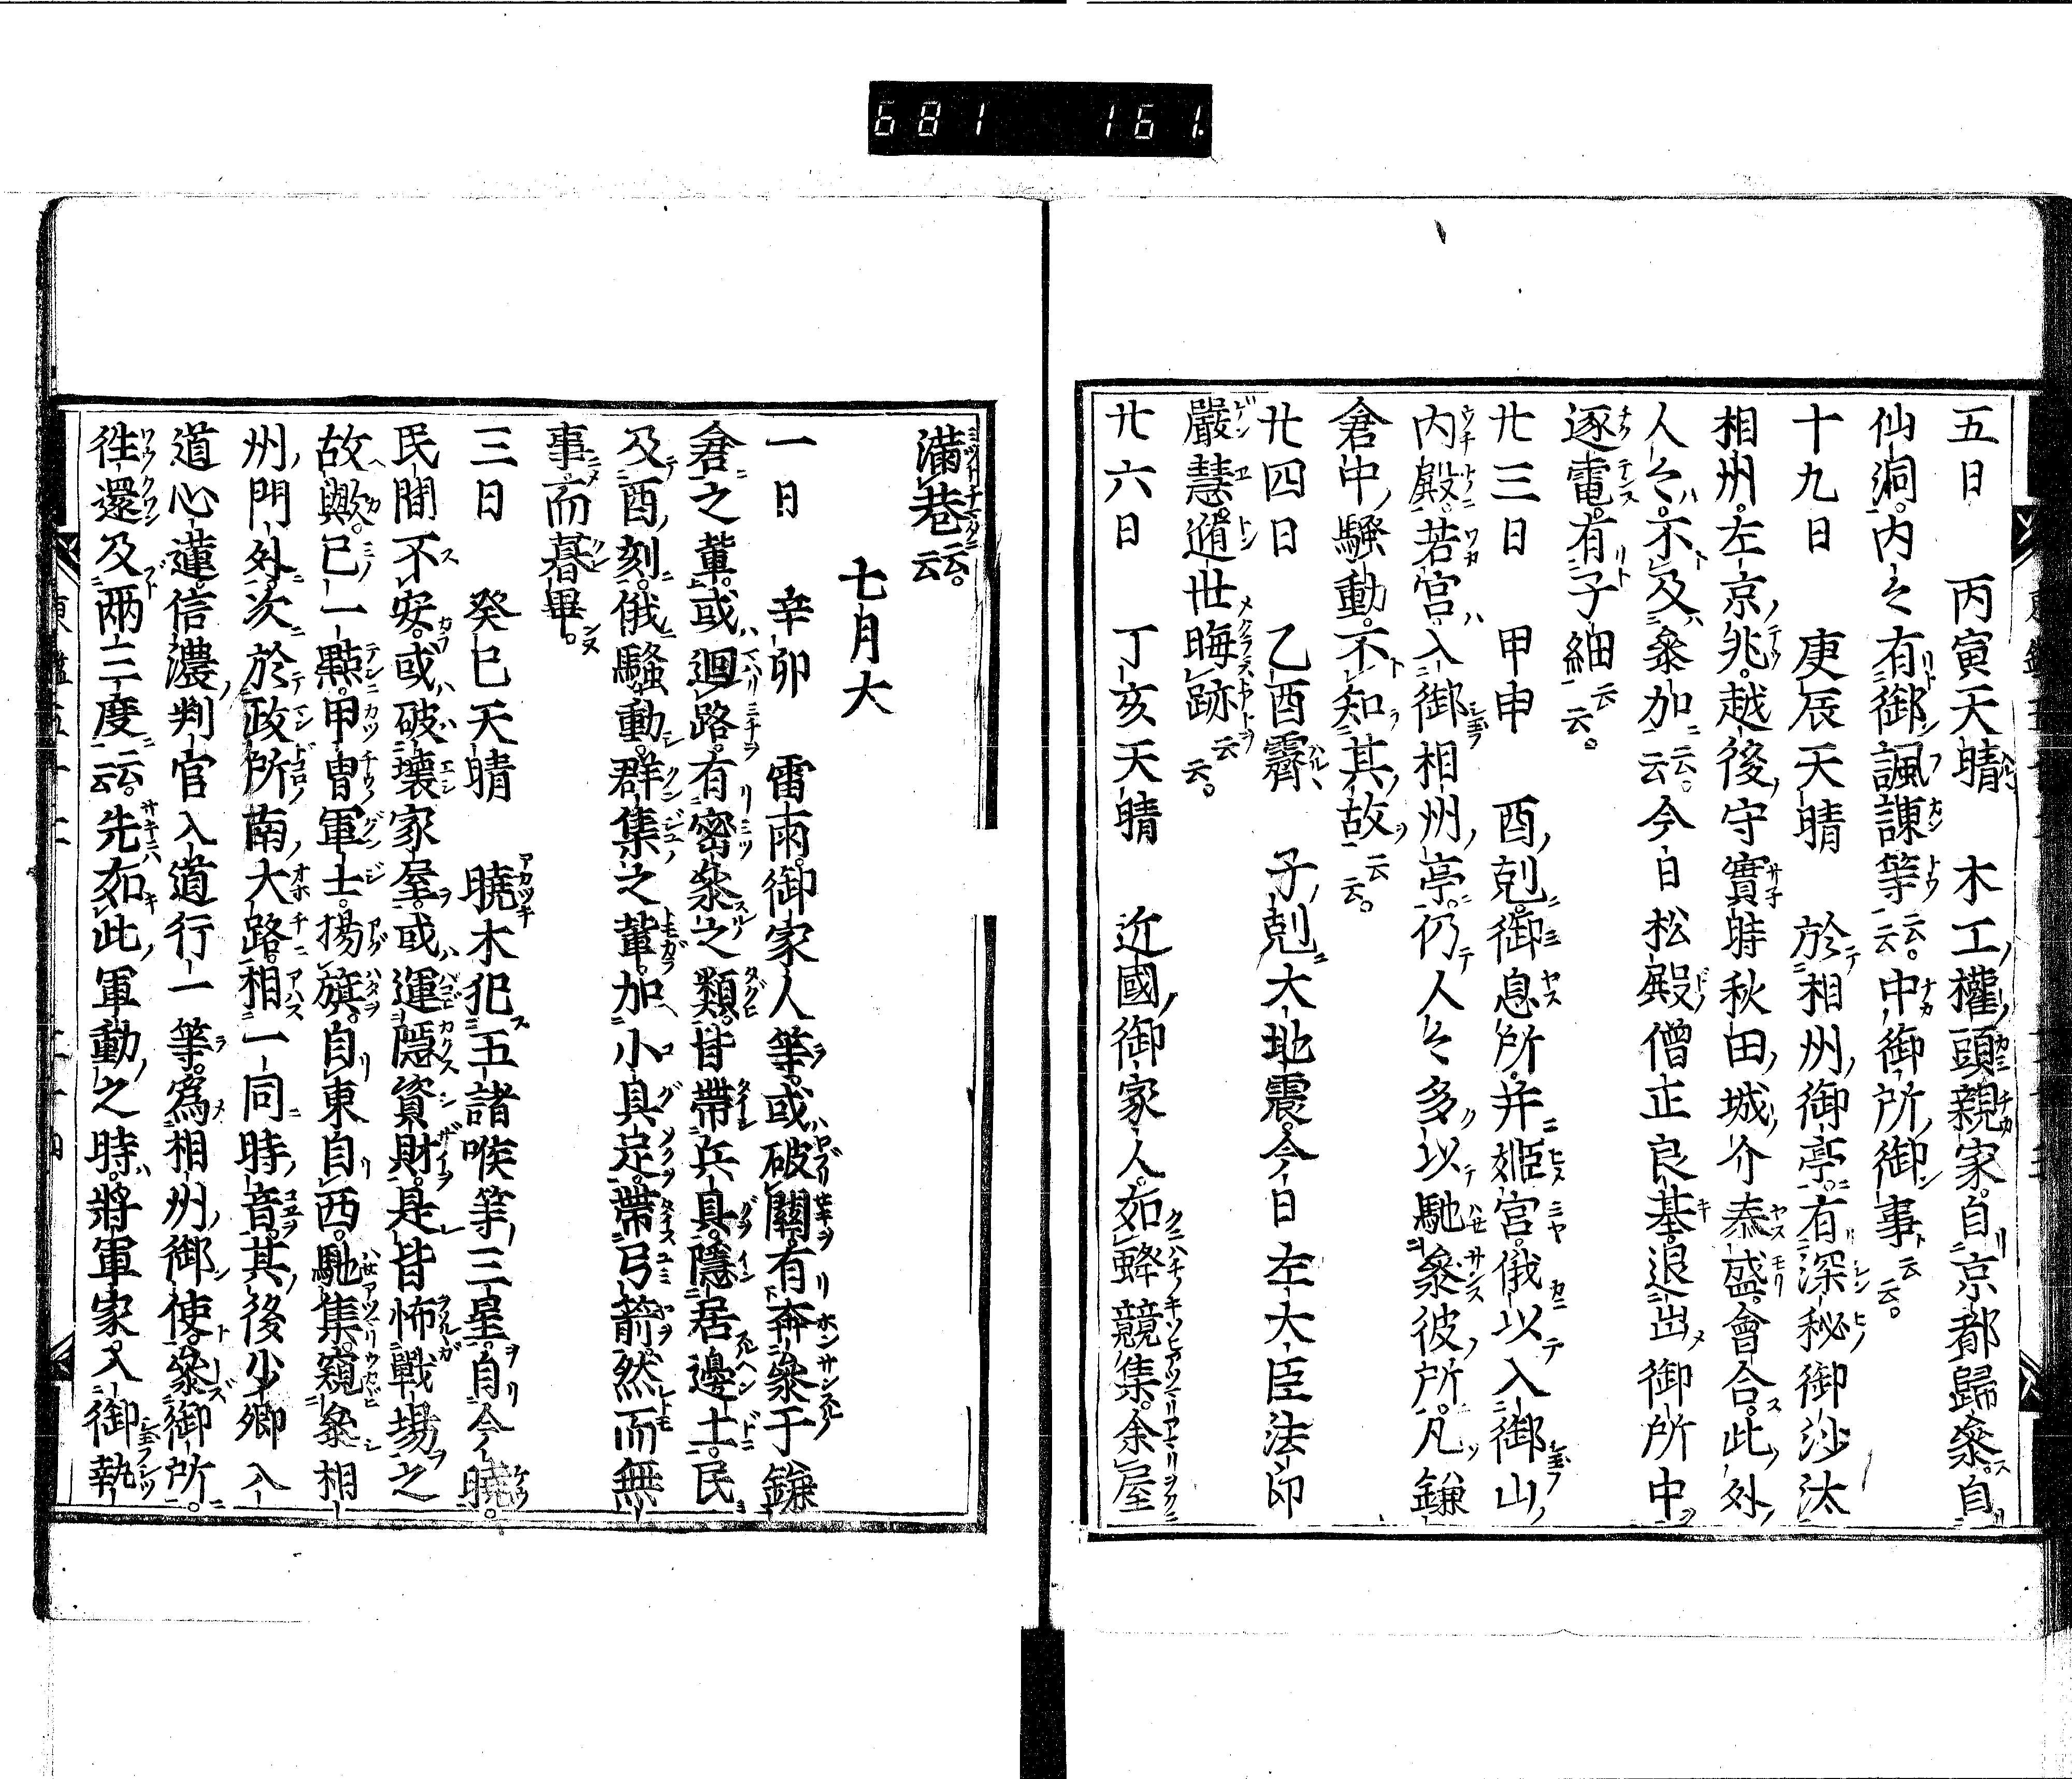 681 161.
五日 丙寅天晴 木工權頭親家自京都歸參自
仙洞内々有御諷諫等云云中御所御事云云
十九日 庚辰天晴 於相州御亭有深秘御沙汰
相州左京兆越後守實時秋田城介泰盛會合此外
人々不及參加云云今日松殿僧正良基退出御所中
逐電有子細云云
廿三日 甲申 酉剋御息所并姬宮俄以入御山
内殿若宮入御相州亭仍人々多以馳參彼所凡鎌
倉中騷動不知其故云云
廿四日 乙酉霽 子剋大地震今日左大臣法印
嚴慧遁世晦跡云云
廿六日 丁亥天晴 近國御家人如蜂競集余屋
滿巷云云
七月大
一日 辛卯 雷雨御家人等或破關有奔參于鎌
倉之輩或迴路有密參之類皆帶兵具隱居邊土民
及酉刻俄騷動群集之輩加小具足帶弓箭然而無
事而暮畢
三日 癸巳天晴 曉木犯五諸喉等三星自今曉
民間不安或破壞家屋或運隱資財是皆怖戰場之
故歟巳一點甲冑軍士揚旗自東自西馳集窺參相
州門外次於政所南大路相一同時音其後少卿入
道心蓮信濃判官入道行一等爲相州御使參御所
往還及兩三度云云先如此軍動之時將軍家入御執